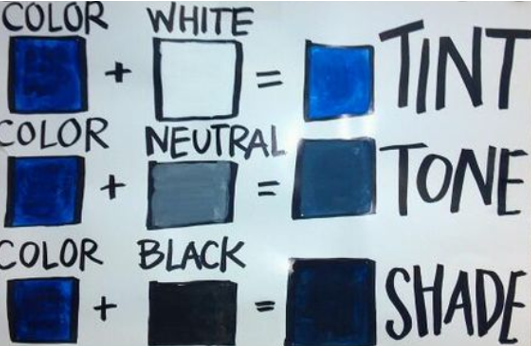 COLOR WHITE
+ = TINT
COLOR NEUTRAL
+ = TONE
COLOR BLACK
+ = SHADE